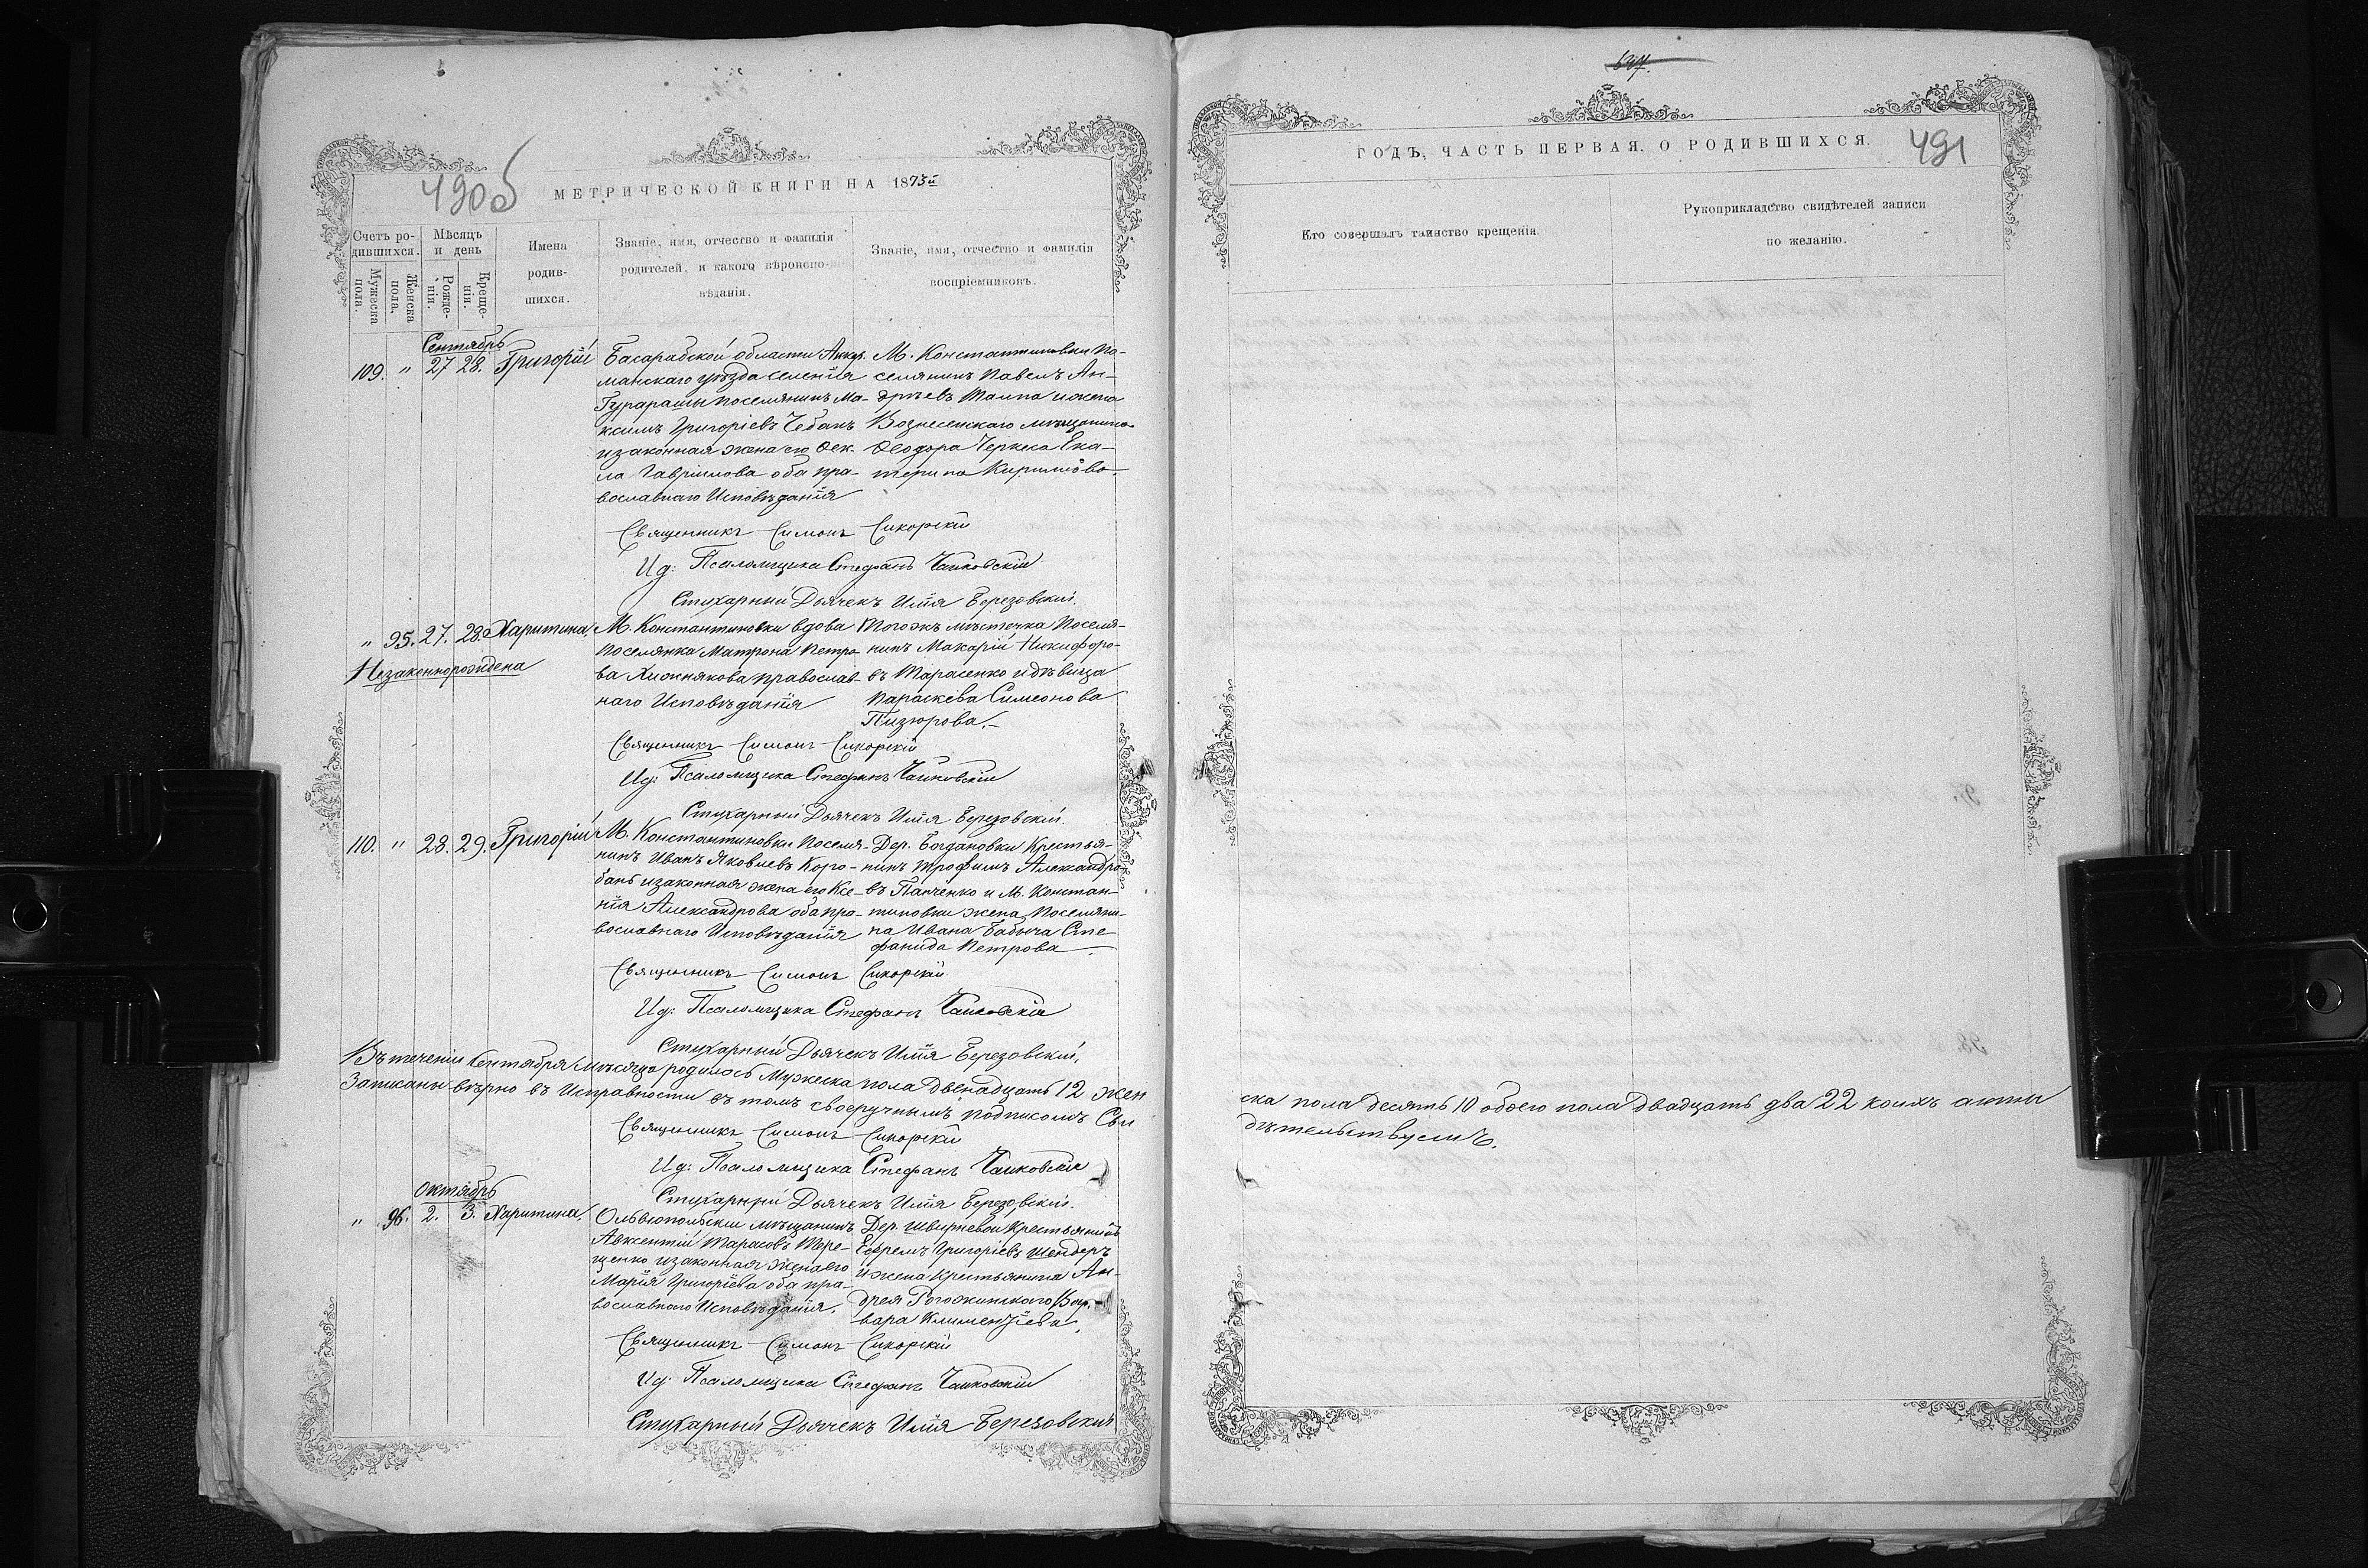 490об
МЕТРИЧЕСКОЙ КНИГИ НА 1875й
Счетъ ро-
дившихся.
Мѣсяцъ
и день
Мужеска
пола.
Женска
пола.
Рожде-
нія.
Креще-
нія.
Имена
родив-
шихся.
Званіе, имя, отчество и фамилія
родителей, и какого вѣроиспо-
вѣданія.
Званіе, имя, отчество и фамилія
воспріемниковъ.
Сентябрь
109. " 27 28. Григорій
Басарабской области Аккер.
манскаго уѣзда селенія
поселянинъ Ма-
ксимъ Григоріевъ Чебанъ
и законная жена его Фек-
ла Гавріилова оба пра-
вославнаго Исповѣданія
М. Константиновки по-
селянинъ Павелъ Ан-
дрѣевъ и жена
Вознесенскаго мѣщанина
Феодора Черкеса Ека-
терина Кирилова.
Священникъ Симонъ Сикорскій
Ид: Псаломщика Стефанъ Чайковскій
Стихарный Дьячекъ Илія Березовскій.
" 95. 27. 28. Харитина.
Незаконнорождена
М. Константиновки вдова
поселянка Матрона Петро-
ва Хижнякова православ-
наго Исповѣданія
Тогожъ мѣстечка Поселя-
нинъ Макарій Никифоро-
въ Тарасенко и дѣвица
Параскева Симеонова
Пизюрова.
Священникъ Симонъ Сикорскій
Ид: Псаломщика Стефанъ Чайковскій
Стихарный Дьячекъ Илія Березовскій.
110. " 28. 29. Григорій
М. Константиновки Поселя-
нинъ Иванъ Яковлевъ Коро-
банъ и законная жена его Ксе-
нія Александрова оба пра-
вославнаго Исповѣданія
Дер. Богдановки Крестья-
нинъ Трофимъ Александро-
въ Панченко и М. Констан-
тиновки жена Поселяни-
на Ивана Бабыча Сте-
фанида Петрова
Священникъ Симонъ Сикорскій
Ид: Псаломщика Стефанъ Чайковскій
Стихарный Дьячекъ Илія Березовскій.
Въ теченіи Сентября мѣсяца родилось Мужеска пола двенадцать 12 жен
Записаны вѣрно въ Исправности въ томъ своеручнымъ подписомъ Сви
Священникъ Симонъ Сикорскій
Ид: Псаломщика Стефанъ Чайковскій
Стихарный Дьячекъ Илія Березовскій.
Октябрь
" 96. 2. 3. Харитина.
Ольвіопольскій мѣщанинъ
Авксентій Тарасовъ Тере-
щенко и законная жена его
Марія Григоріева оба пра-
вославнаго Исповѣданія.
Дер. Швыревой Крестьянинъ
Ефремъ Григоріевъ Шендеръ
и жена Крестьянина Ан-
дрея Рогожинскаго Вар-
вара Климентіева.
Священникъ Симонъ Сикорскій
Ид: Псаломщика Стефанъ Чайковскій
Стихарный Дьячекъ Илія Березовскій
637.
ГОДЪ, ЧАСТЬ ПЕРВАЯ. О РОДИВШИХСЯ.
491
Кто совершалъ таинство крещенія.
Рукоприкладство свидѣтелей записи
по желанію.
ска пола десять 10 обоего пола двадцать два 22 коихъ акты
дѣтельствуемъ.